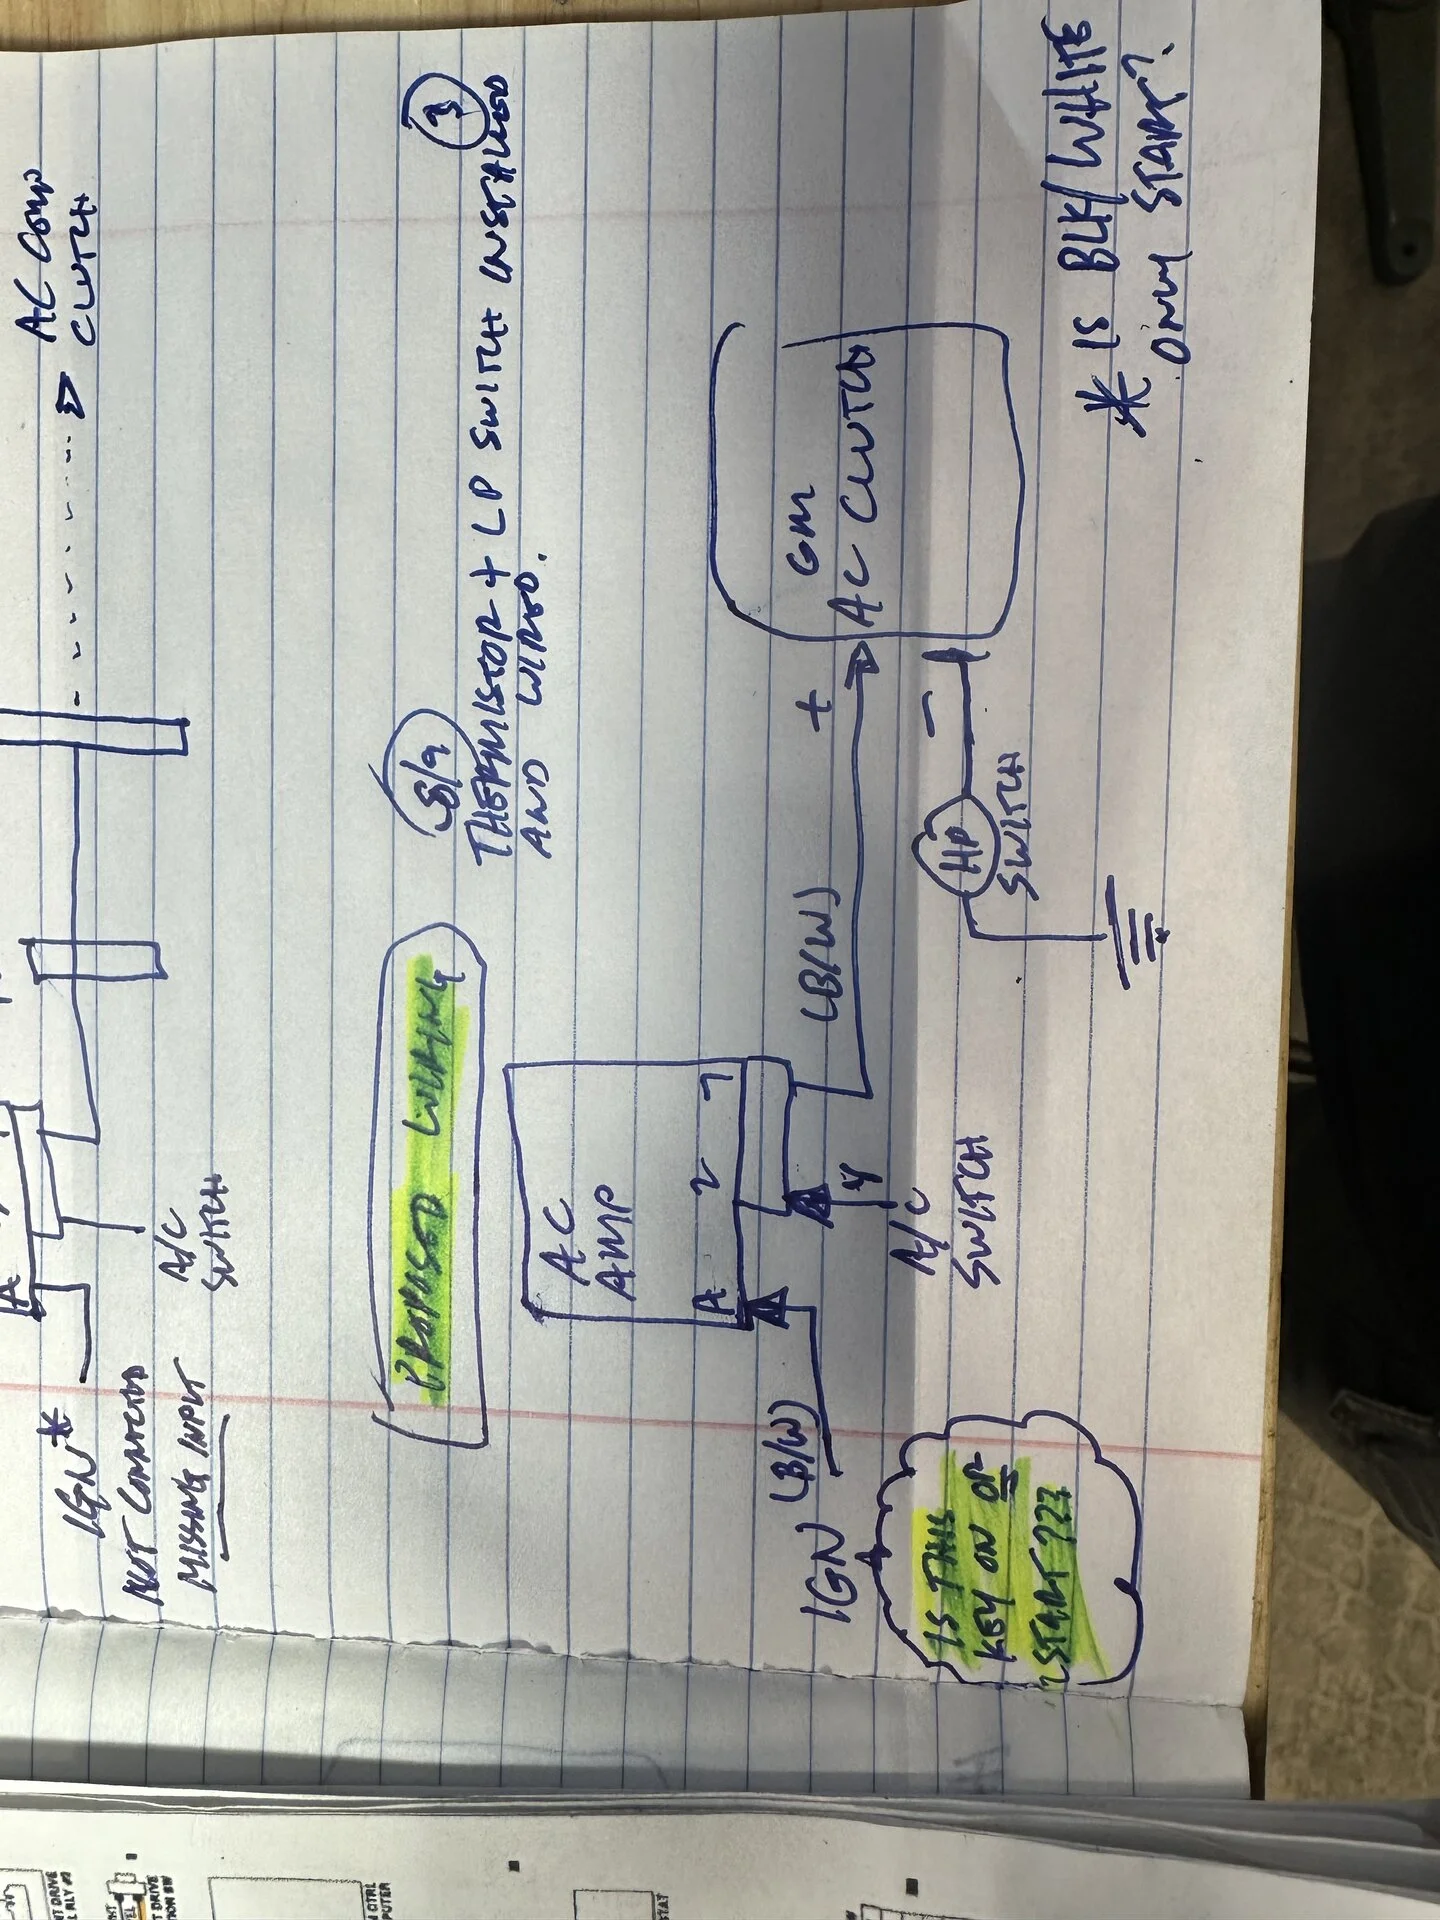 AC COMP
CLUTCH
IGN *
NOT CONNECTED
MISSING INPUT
A
A/C
SWITCH
PROPOSED WIRING
8/9
3
THERMISTOR + LP SWITCH INSTALLED
AND WIRED.
AC
AMP
A 2 7
4
IGN (B/W)
A/C
SWITCH
LB/W)
+
GM
AC CLUTCH
-
HP
SWITCH
IS THIS
KEY ON OR
START???
* IS BLK/WHITE
ONLY START?